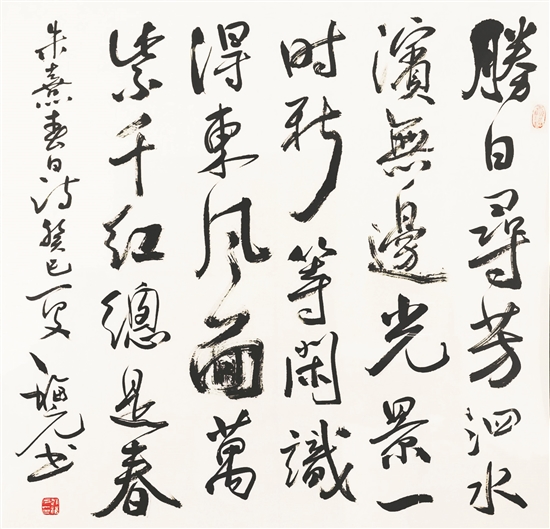 勝日尋芳泗水
濱無邊光景一
時新等閑識
得東風面萬
紫千紅總是春
朱熹春日詩癸巳夏 書